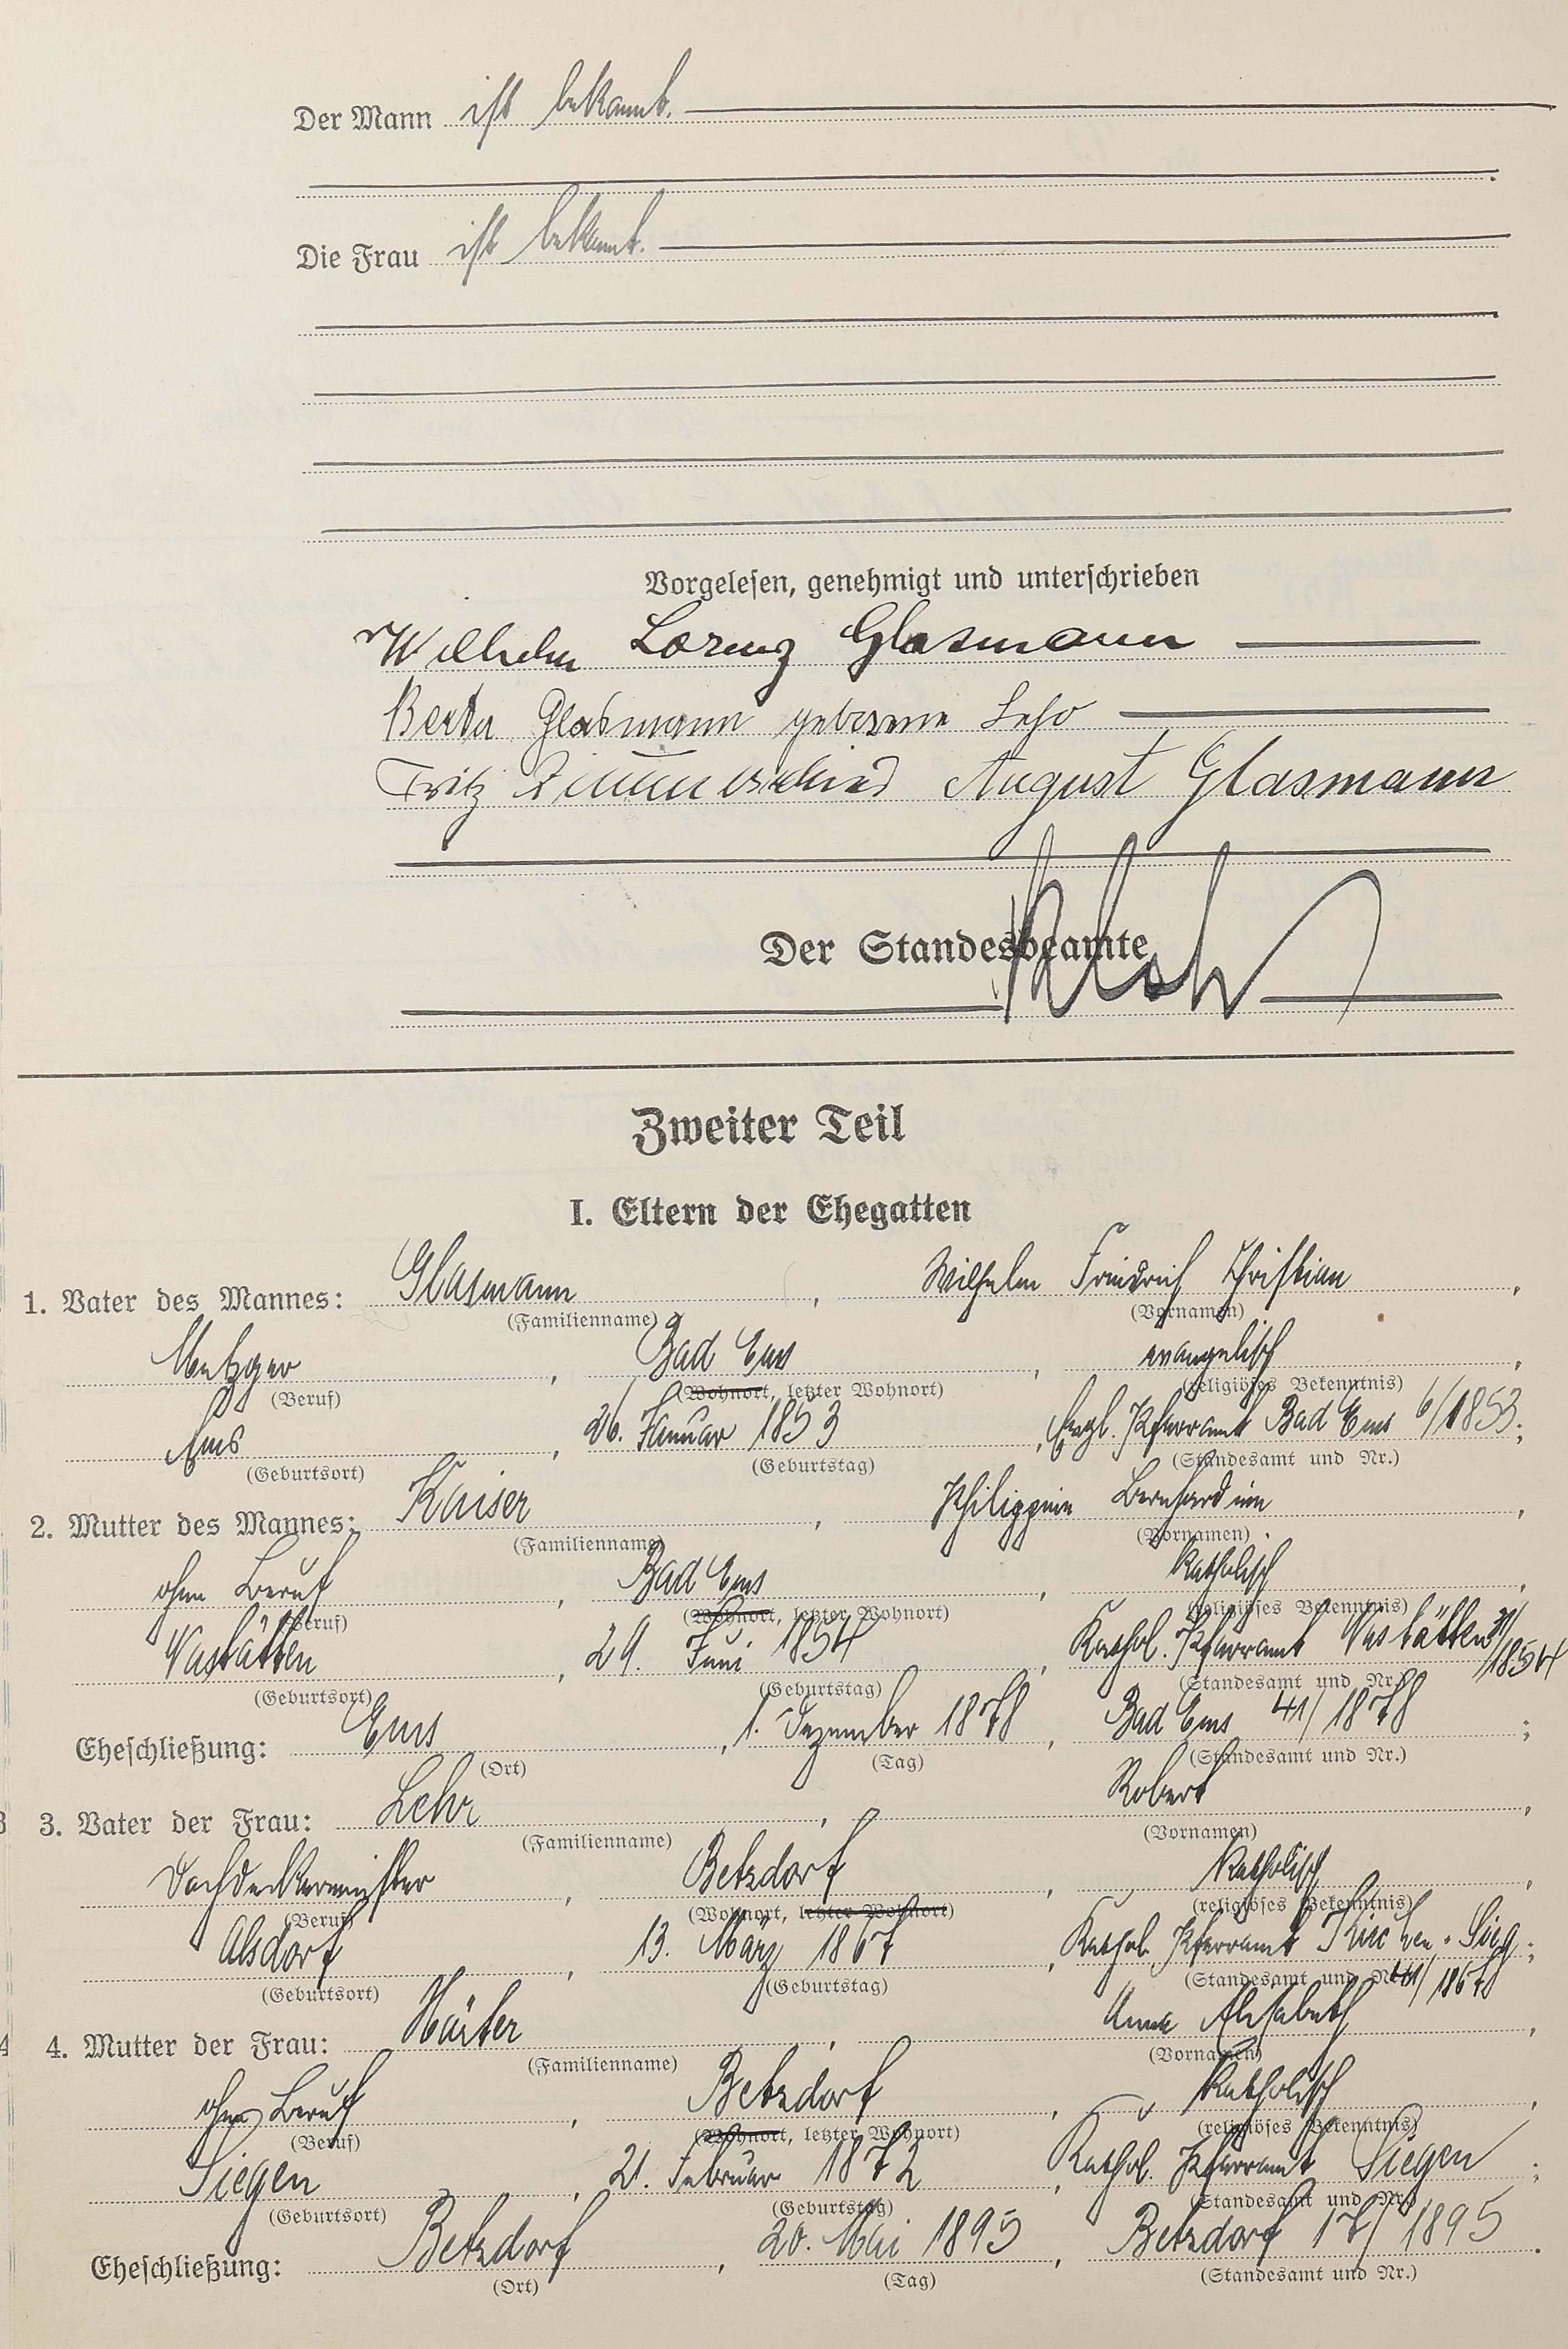 Der Mann ist bekannt.
Die Frau ist bekannt.
Vorgelesen, genehmigt und unterschrieben
Wilhelm Lorenz Glasmann
Berta Glasmann geborene Lehr
Fritz Zimmerschied August Glasmann
Der Standesbeamte
Zweiter Teil
I. Eltern der Ehegatten
1. Vater des Mannes: Glasmann, Wilhelm Friedrich Christian,
(Familienname) (Vornamen)
Metzger, Bad Ems, evangelisch,
(Beruf) (Wohnort, letzter Wohnort) (religiöses Bekenntnis)
Ems, 26. Januar 1853, Evgl. Pfarramt Bad Ems 6/1853;
(Geburtsort) (Geburtstag) (Standesamt und Nr.)
2. Mutter des Mannes: Kaiser, Philippine Bernhardine,
(Familienname) (Vornamen)
ohne Beruf, Bad Ems, katholisch,
(Beruf) (Wohnort, letzter Wohnort) (religiöses Bekenntnis)
Nastätten, 29. Juni 1854, Kathol. Pfarramt Nastätten /1854
(Geburtsort) (Geburtstag) (Standesamt und Nr.)
Eheschließung: Ems, 1. Dezember 1878, Bad Ems 41/1878;
(Ort) (Tag) (Standesamt und Nr.)
3. Vater der Frau: Lehr, Robert,
(Familienname) (Vornamen)
Dachdeckermeister, Betzdorf, katholisch,
(Beruf) (Wohnort, letzter Wohnort) (religiöses Bekenntnis)
Alsdorf, 13. März 1867, Kathol. Pfarramt Kirchen-Sieg;
(Geburtsort) (Geburtstag) (Standesamt und Nr.) /1867
4. Mutter der Frau: Härter, Anna Elisabeth,
(Familienname) (Vornamen)
ohne Beruf, Betzdorf, katholisch,
(Beruf) (Wohnort, letzter Wohnort) (religiöses Bekenntnis)
Siegen, 21. Februar 1872, Kathol. Pfarramt Siegen;
(Geburtsort) (Geburtstag) (Standesamt und Nr.)
Eheschließung: Betzdorf, 20. Mai 1895, Betzdorf 17/1895.
(Ort) (Tag) (Standesamt und Nr.)